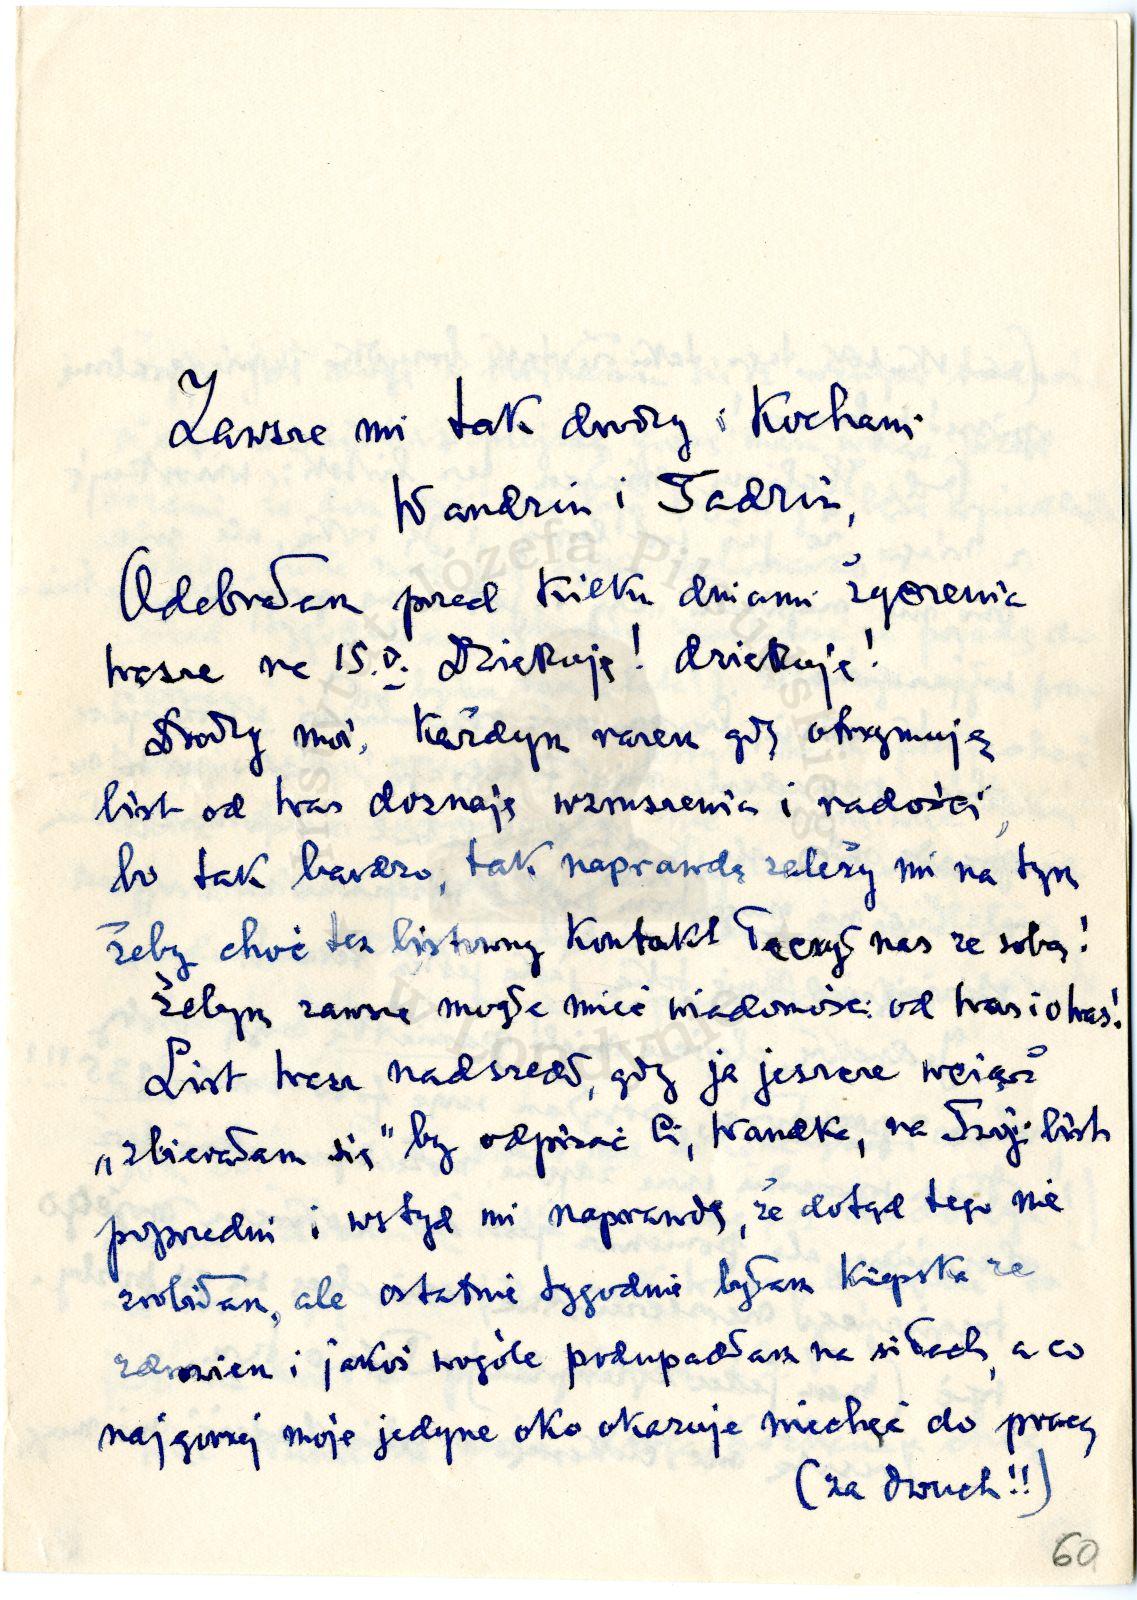 Zawsze mi tak drodzy i Kochani
Wandziu i Tadziu,
Odebrałam przed kilku dniami życzenia
Wasze na 15.V. Dziękuję! dziękuję!
Drodzy moi, każdym razem gdy otrzymuję
list od Was doznaję wzruszenia i radości,
bo tak bardzo, tak naprawdę zależy mi na tym
żeby choć ten listowny kontakt łączył nas ze sobą!
Żebym zawsze mogła mieć wiadomości od Was i o Was!
List Wasz nadszedł, gdy ja jeszcze wciąż
„zbierałam się" by odpisać Ci, Wandko, na Twój list
poprzedni i wstyd mi naprawdę, że dotąd tego nie
zrobiłam, ale ostatnie tygodnie byłam kiepska ze
zdrowiem i jakoś wogóle podupadłam na siłach, a co
najgorzej moje jedyne oko okazuje niechęć do pracy
(za dwuch!!)
60
Instytut Józefa Piłsudskiego
w Londynie